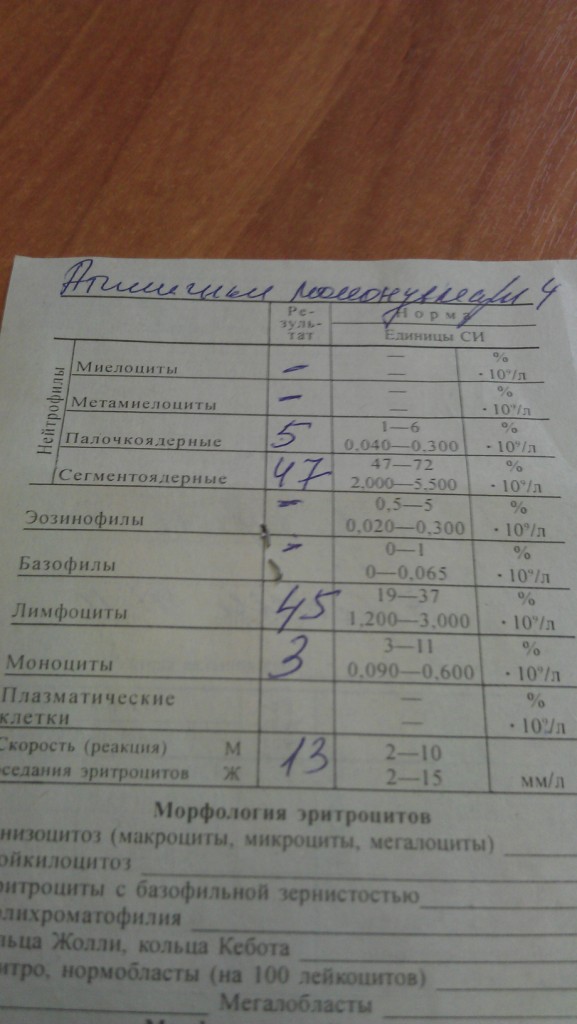 Атипичные мононуклеары 4
Ре-
зуль-
тат
Норма
Единицы СИ
Нейтрофилы
Миелоциты - — %
— · 10⁹/л
Метамиелоциты - — %
— · 10⁹/л
Палочкоядерные 5 1—6 %
0,040—0,300 · 10⁹/л
Сегментоядерные 47 47—72 %
2,000—5,500 · 10⁹/л
Эозинофилы - 0,5—5 %
0,020—0,300 · 10⁹/л
Базофилы - 0—1 %
0—0,065 · 10⁹/л
Лимфоциты 45 19—37 %
1,200—3,000 · 10⁹/л
Моноциты 3 3—11 %
0,090—0,600 · 10⁹/л
Плазматические — %
клетки — · 10⁹/л
Скорость (реакция) М 13 2—10
оседания эритроцитов Ж 2—15 мм/л
Морфология эритроцитов
низоцитоз (макроциты, микроциты, мегалоциты)
ойкилоцитоз
ритроциты с базофильной зернистостью
олихроматофилия
льца Жолли, кольца Кебота
итро, нормобласты (на 100 лейкоцитов)
Мегалобласты